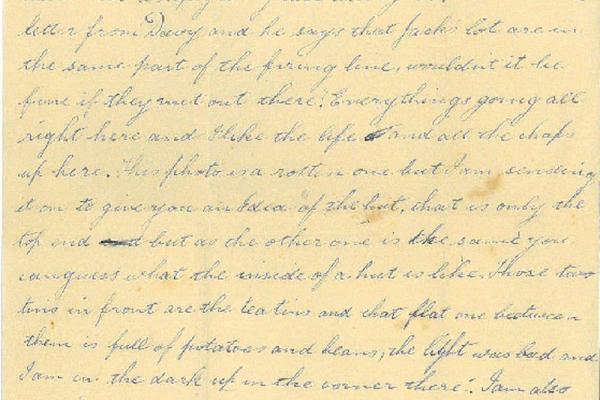 letter from Davy and he says that Jack's lot are in
the same part of the firing line, wouldn't it be
fune if they met out there! Everythings going all
right here and I like the life and all the chaps
up here. This photo is a rotten one but I am sending
it on to give you an Idea of the hut, that is only the
top end but as the other one is the same you
canguess what the inside of a hut is like. Those two
tins in front are the tea tins and that flat one between
them is full of potatoes and beans, the light was bad and
I am in the dark up in the corner there! I am also